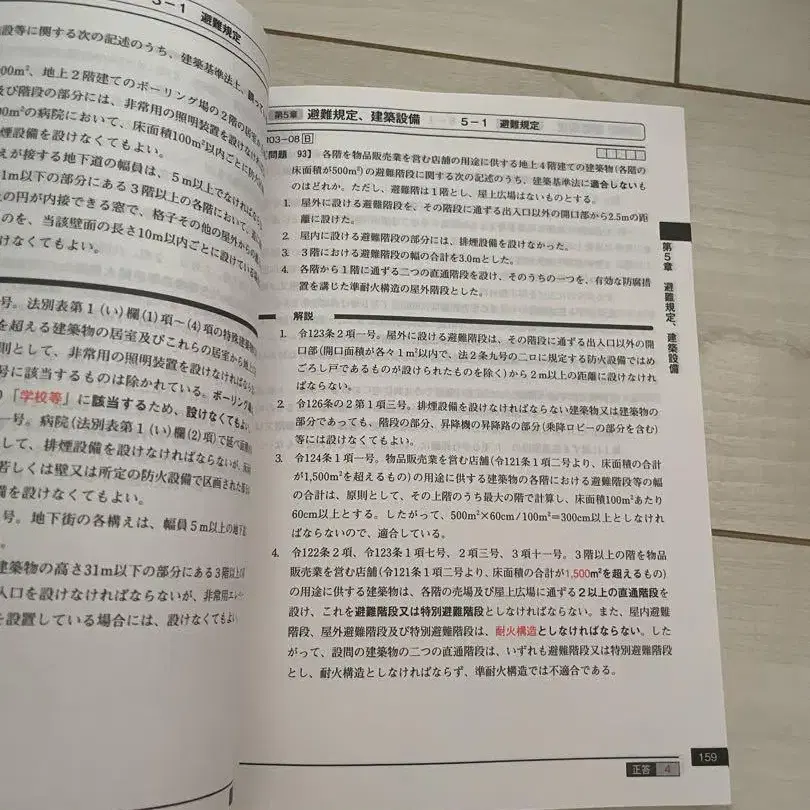 5－1 避難規定
設等に関する次の記述のうち、建築基準法上、誤って
00m²、地上2階建てのボーリング場の2階の居室から
及び階段の部分には、非常用の照明装置を設けな
00m²の病院において、床面積100m²以内ごとに防
煙設備を設けなくてもよい。
えが接する地下道の幅員は、5m以上でなければな
1m以下の部分にある3階以上の各階において、
上の円が内接できる窓で、格子その他の屋外からの
のを、当該壁面の長さ10m以内ごとに設けてい
けなくてもよい。
号。法別表第1(い)欄(1)項～(4)項の特殊建築物
を超える建築物の居室及びこれらの居室から地上
則として、非常用の照明装置を設けなければなら
号に該当するものは除かれている。ボーリング
「学校等」に該当するため、設けなくてもよい
一号。病院(法別表第1(い)欄(2)項)で延べ面積
して、排煙設備を設けなければならないが、
若しくは壁又は所定の防火設備で区画された部
備を設けなくてもよい。
号。地下街の各構えは、幅員5m以上の地下
。
建築物の高さ31m以下の部分にある3階以上
入口を設けなければならないが、非常用エレ
を設置している場合には、設けなくてもよい
第5章 避難規定、建築設備 5－1 避難規定
H03－08 B
[問題 93] 各階を物品販売業を営む店舗の用途に供する地上4階建ての建築物(各階の
床面積が500m²)の避難階段に関する次の記述のうち、建築基準法に適合しないも
のはどれか。ただし、避難階は1階とし、屋上広場はないものとする。
1. 屋外に設ける避難階段を、その階段に通ずる出入口以外の開口部から2.5mの距
離に設けた。
2. 屋内に設ける避難階段の部分には、排煙設備を設けなかった。
3. 3階における避難階段の幅の合計を3.0mとした。
4. 各階から1階に通ずる二つの直通階段を設け、そのうちの一つを、有効な防腐措
置を講じた準耐火構造の屋外階段とした。
解説
1. 令123条2項一号。屋外に設ける避難階段は、その階段に通ずる出入口以外の開
口部(開口面積が各々1m²以内で、法2条九号の二ロに規定する防火設備ではめ
ごろし戸であるものが設けられたものを除く)から2m以上の距離に設けなけれ
ばならない。
2. 令126条の2第1項三号。排煙設備を設けなければならない建築物又は建築物の
部分であっても、階段の部分、昇降機の昇降路の部分(乗降ロビーの部分を含む)
等には設けなくてもよい。
3. 令124条1項一号。物品販売業を営む店舗(令121条1項二号より、床面積の合計
が1,500m²を超えるもの)の用途に供する建築物の各階における避難階段等の幅
の合計は、原則として、その上階のうち最大の階で計算し、床面積100m²あたり
60cm以上とする。したがって、500m²×60cm/100m²=300cm以上としなけれ
ばならないので、適合している。
4. 令122条2項、令123条1項七号、2項三号、3項十一号。3階以上の階を物品
販売業を営む店舗(令121条1項二号より、床面積の合計が1,500m²を超えるもの)
の用途に供する建築物は、各階の売場及び屋上広場に通ずる2以上の直通階段を
設け、これを避難階段又は特別避難階段としなければならない。また、屋内避難
階段、屋外避難階段及び特別避難階段は、耐火構造としなければならない。した
がって、設問の建築物の二つの直通階段は、いずれも避難階段又は特別避難階段
とし、耐火構造としなければならず、準耐火構造では不適合である。
第5章 避難規定、建築設備
159
正答 4